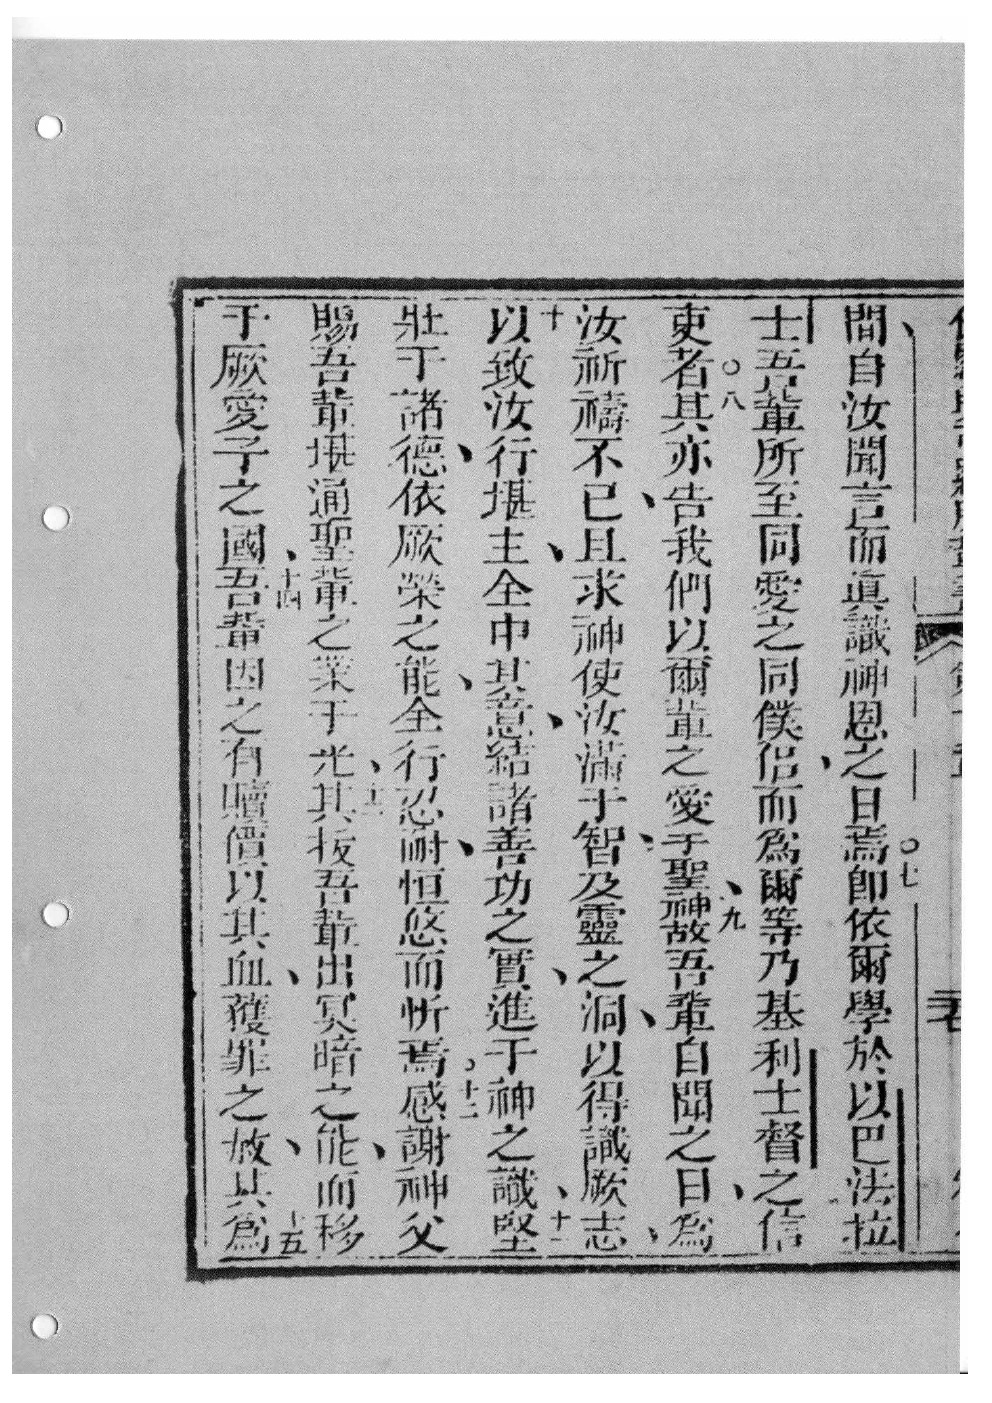 間自汝聞言而眞識神恩之日焉○七卽依爾學於以巴法拉
士吾輩所至同愛之同僕侶而爲爾等乃基利士督之信
吏者○八其亦告我們以爾輩之愛于聖神九故吾輩自聞之日爲
汝祈禱不已且求神使汝滿于智及靈之洞以得識厥志
十以致汝行堪主全中其意結諸善功之實進于神之識十一堅
壯于諸德依厥榮之能全行忍耐恒悠而忻焉十二感謝神父
賜吾輩堪通聖輩之業于光十三其拔吾輩出冥暗之能而移
于厥愛子之國十四吾輩因之有贖價以其血獲罪之赦十五其爲